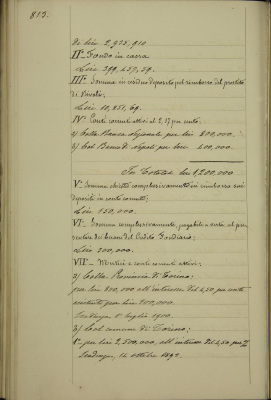 813.
di lire 2,925,910
II° Fondo in cassa
Lire 299,457,59.
III° Somma in residuo deposito pel rimborso del prestito
di Rivoli;
Lire 10,851,69.
IV° Conti correnti attivi al 2,17 per cento;
a) Colla Banca Nazionale per lire 800,000.
b) Col Banco di Napoli per lire 400,000.
In Totale lire 1,200,000
V° Somma
depositi in conto corrente;
Lire 150,000.
VI° Somma complessivamente pagabile a rate al
del Credito Fondiario;
Lire 200,000.
VII° Mutui e conti correnti attivi;
a) Colla Provincia di Torino;
per lire 800,000 all'interesse del 4,50 per cento
per lire 700,000.
Scadenza 1° luglio 1900.
b) Col comune di Torino;
1° per lire 2,500,000 all'interesse del 4,50 per %
Scadenza, 16 ottobre 1892.